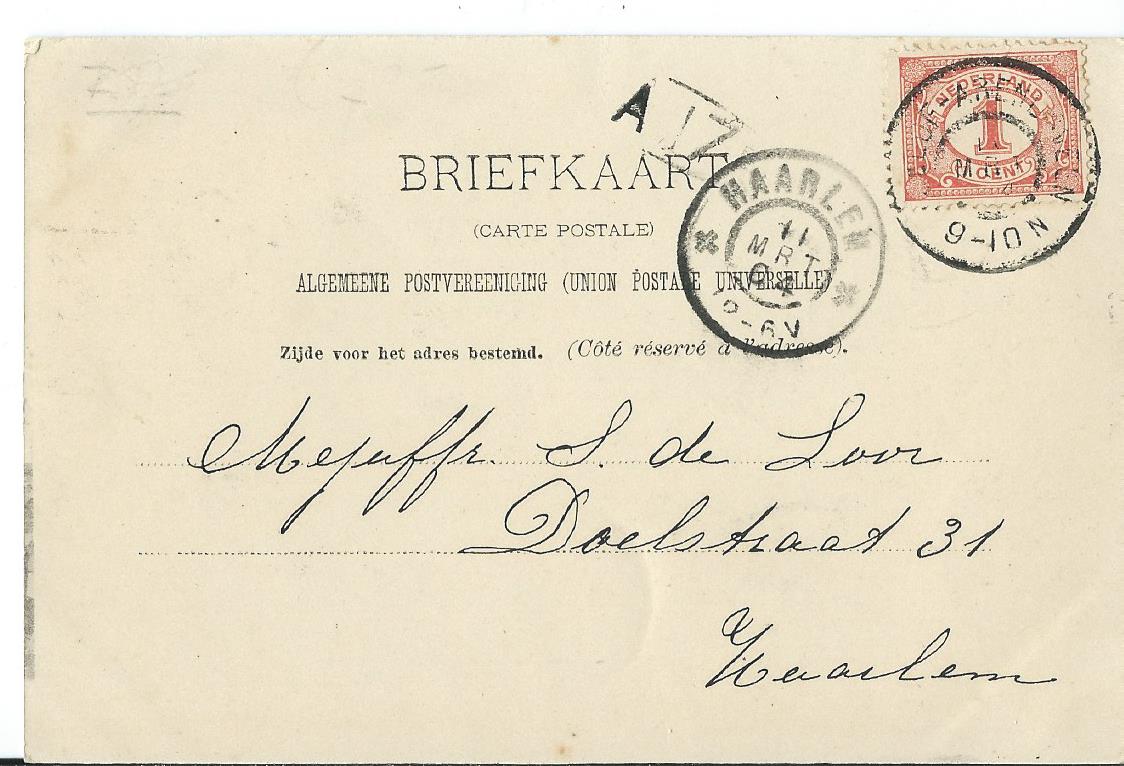 NEDERLAND
1
CENT
9-10 N
A
BRIEFKAART
HAARLEM
11
MRT
04
-6V
(CARTE POSTALE)
ALGEMEENE POSTVEREENIGING (UNION POSTALE UNIVERSELLE)
Zijde voor het adres bestemd. (Côté réservé à l'adresse).
Mejuffr. S. de Loor
Doelstraat 31
Haarlem